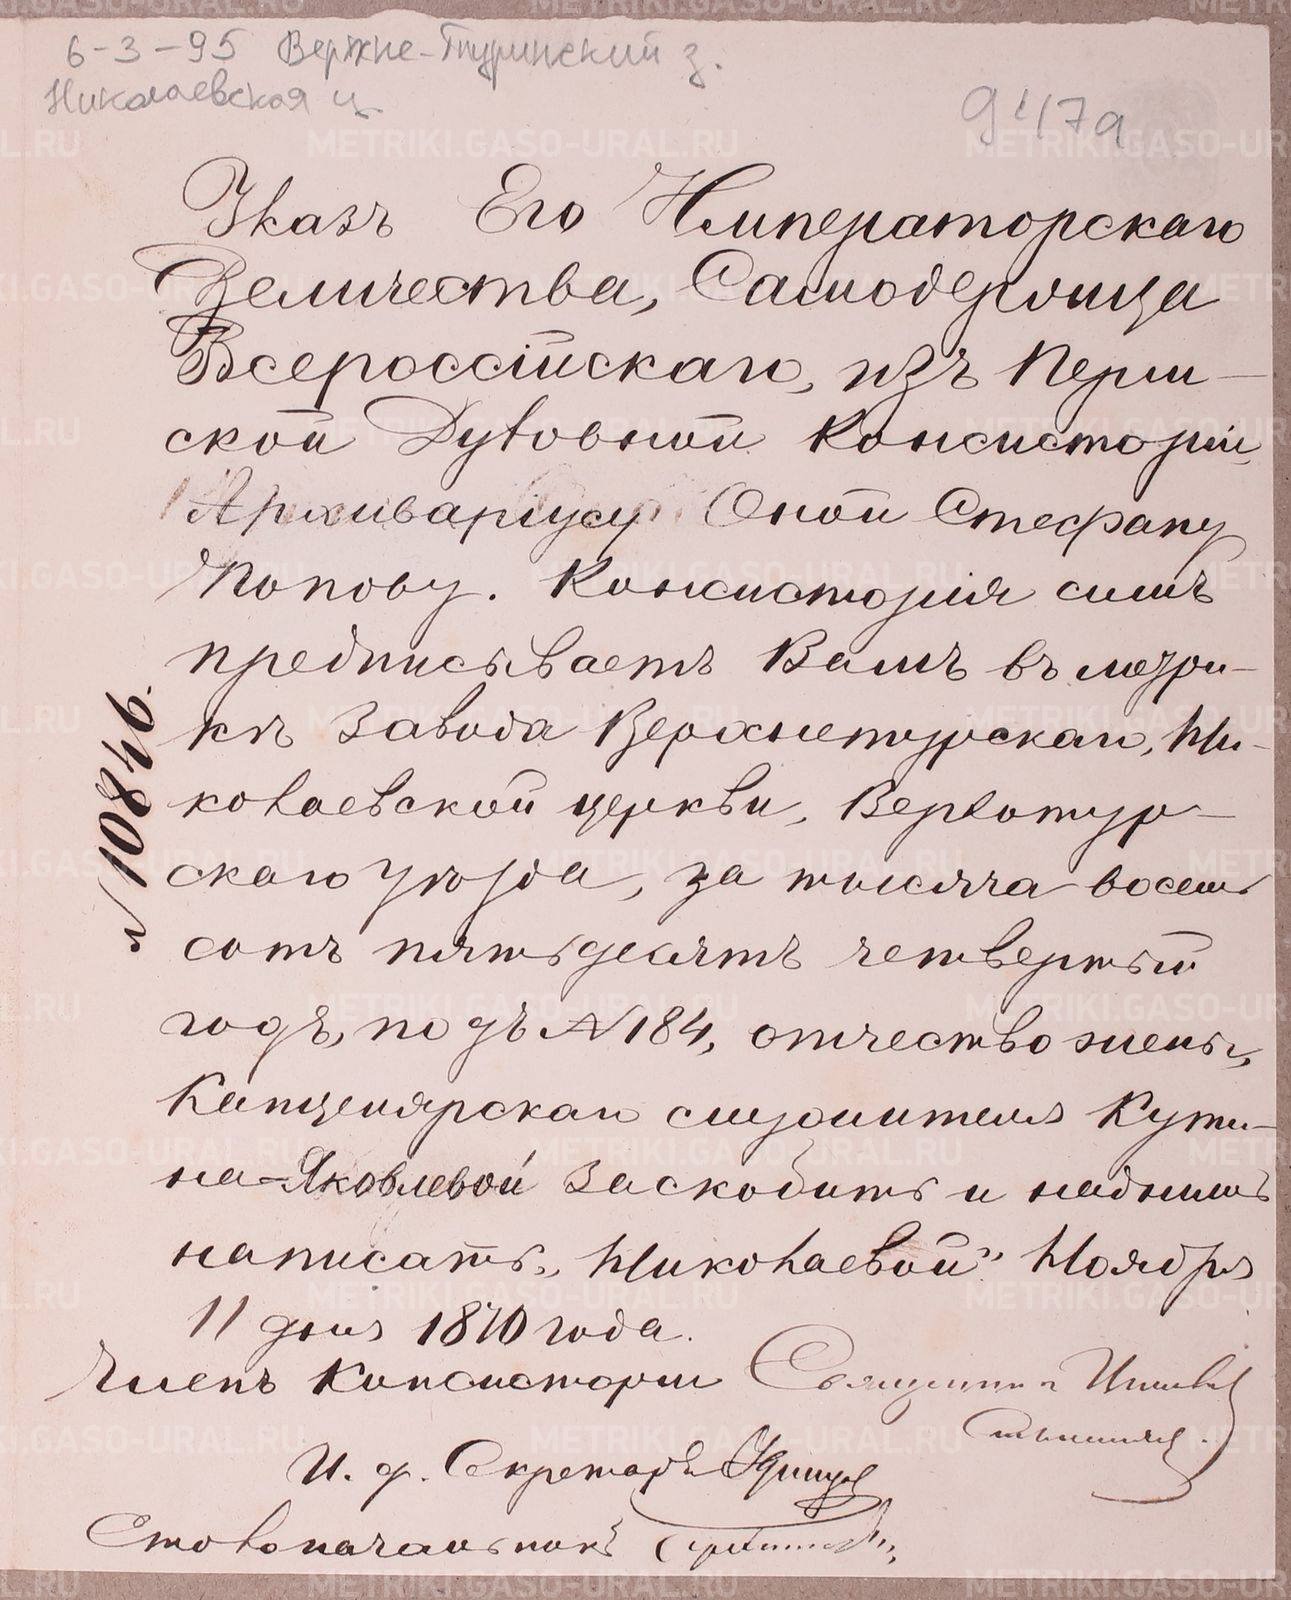 6-3-95 Верхне-Туринский з.
Николаевская ц.
Указъ Его Императорскаго
Величества, Самодержца
Всероссійскаго, изъ Перм-
ской Духовной Консисторіи,
Архиваріусу Оной Стефану
Попову. Консисторія симъ
предписываетъ Вамъ въ метри-
кѣ Завода Верхнетурскаго, Ни-
колаевской церкви, Верхотур-
скаго уѣзда, за тысяча восемь
сотъ пятьдесятъ четвертый
годъ, подъ № 184, отчество жены,
Канцелярскаго служителя Кути-
на-Яковлевой заскобить и надъ нимъ
написать „Николаевой" Ноября
11 дня 1870 года.
№ 10846.
Членъ Консисторіи Священникъ
И. д. Секретаря
Столоначальникъ
METRIKI.GASO-URAL.RU